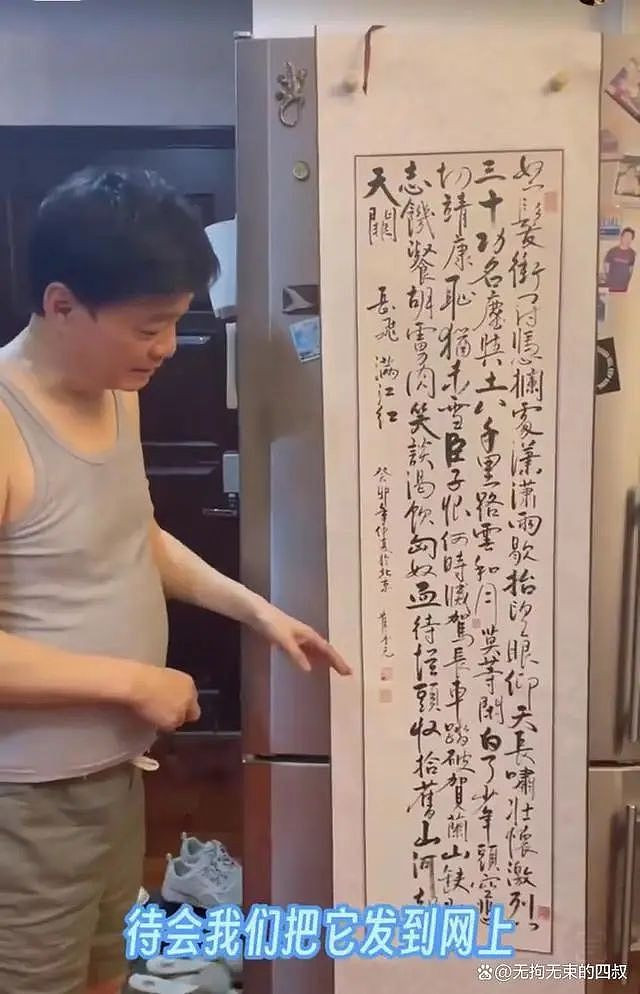 怒髮衝冠憑欄處瀟瀟雨歇抬望眼仰天長嘯壯懷激烈
三十功名塵與土八千里路雲和月莫等閑白了少年頭空悲
切靖康恥猶未雪臣子恨何時滅駕長車踏破賀蘭山缺
志饑餐胡虜肉笑談渴飲匈奴血待從頭收拾舊山河朝
天闕 岳飛 滿江红 癸卯年仲夏於北京 崔永元
待会我们把它发到网上
无拘无束的四叔